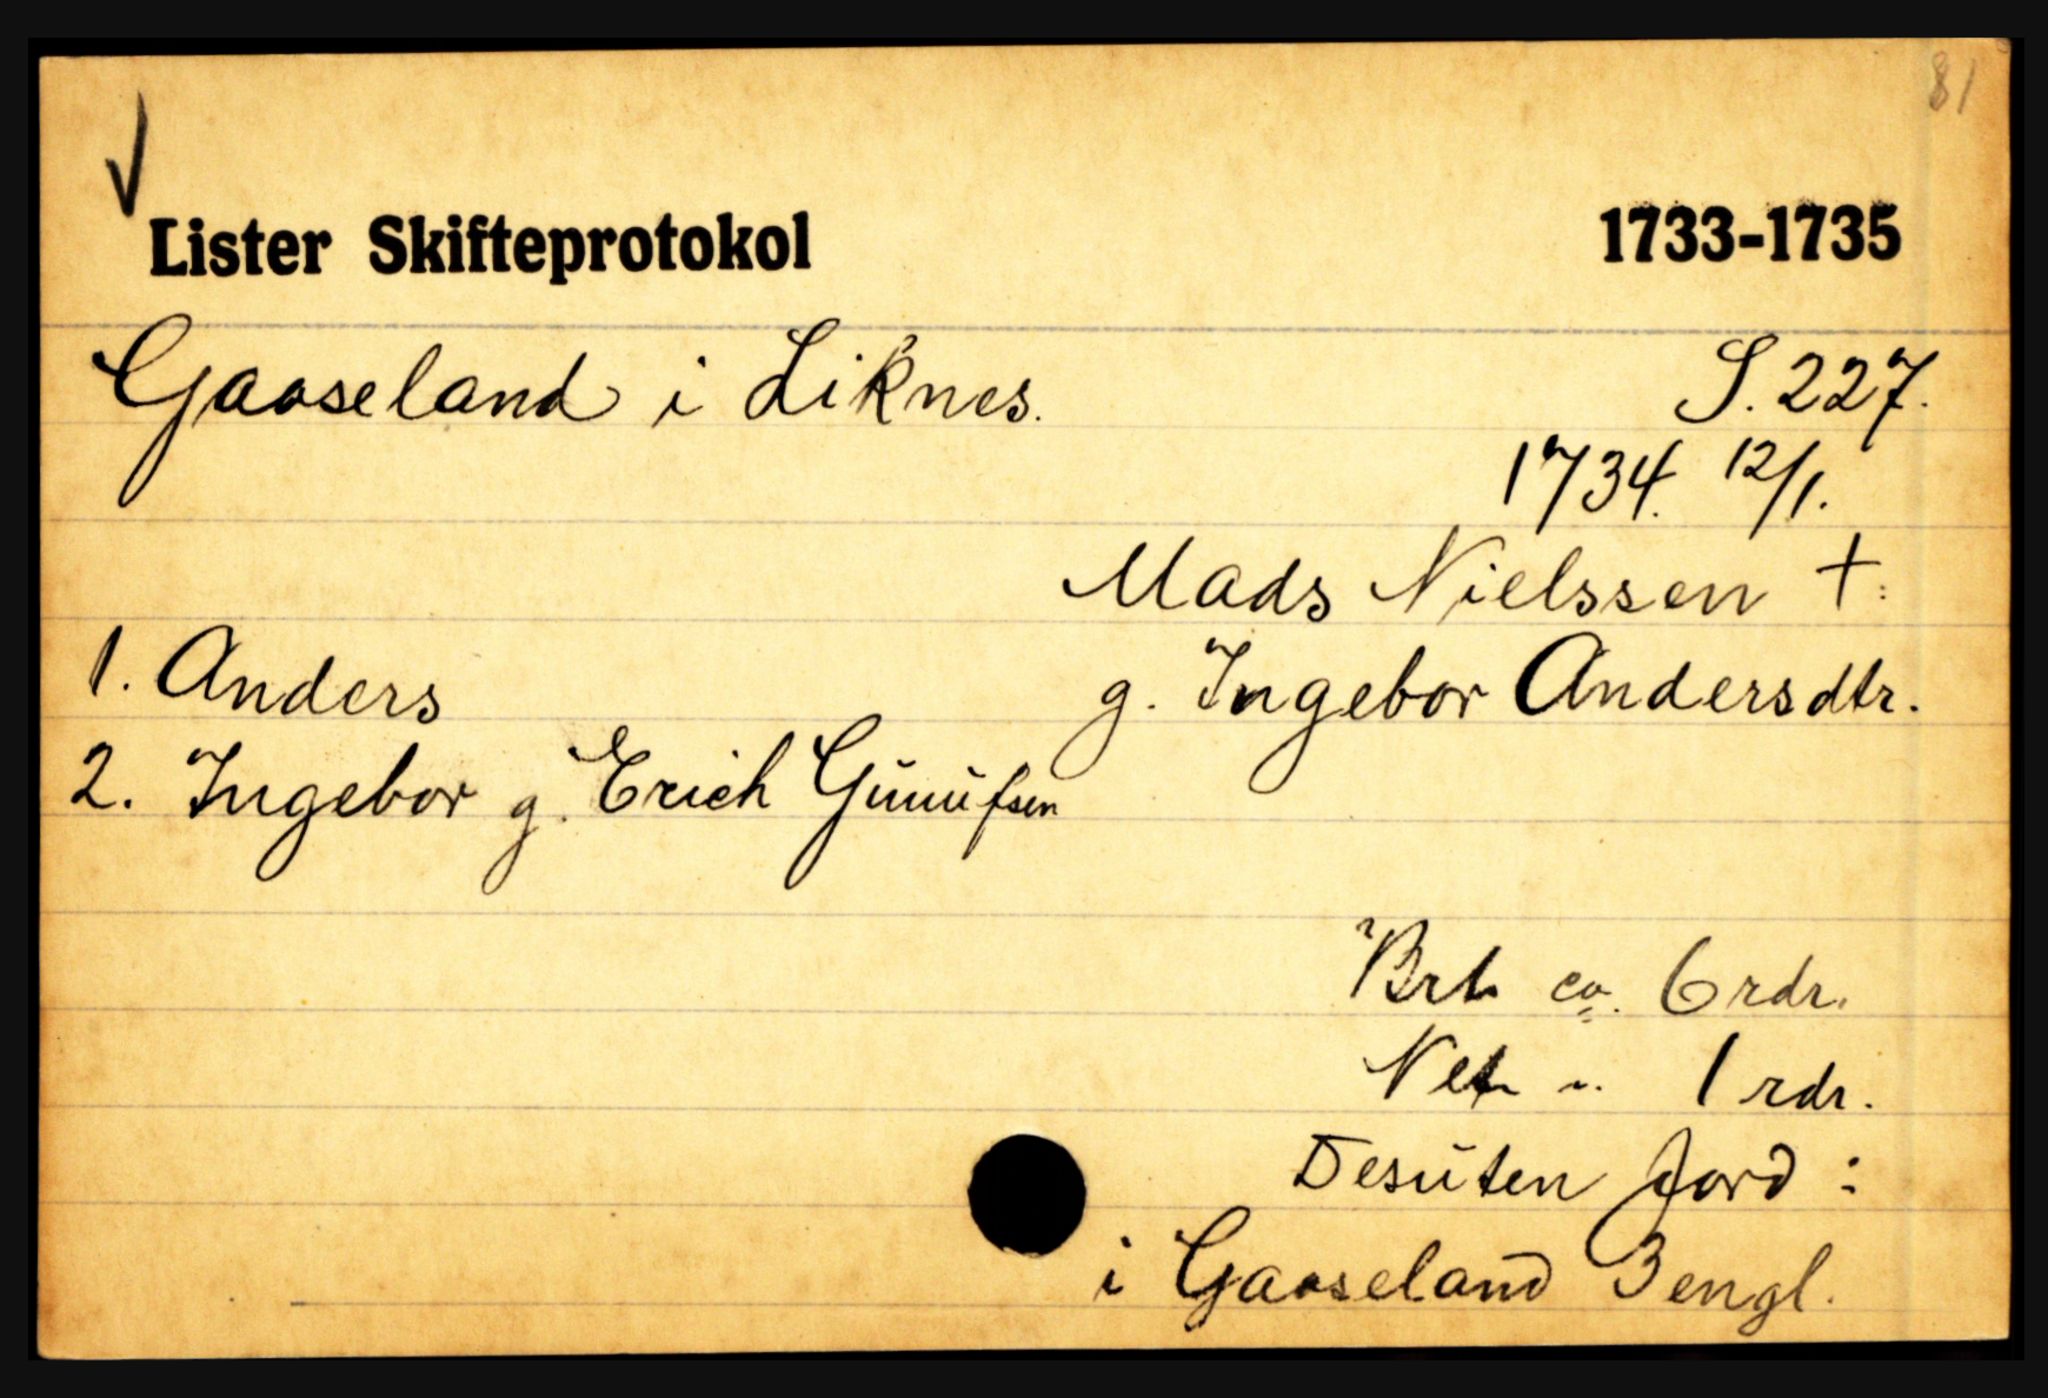 81
Lister Skifteprotokol 1733-1735
Gaaseland i Liknes. S. 227.
1734. 12/1.
Mads Nielssen +.
1. Anders g. Ingebor Andersdtr.
2. Ingebor g. Erich
Brt. ca. 6 rdr.
Net. " 1 rdr.
Desuten Jord :
i Gaaseland 3 engl.